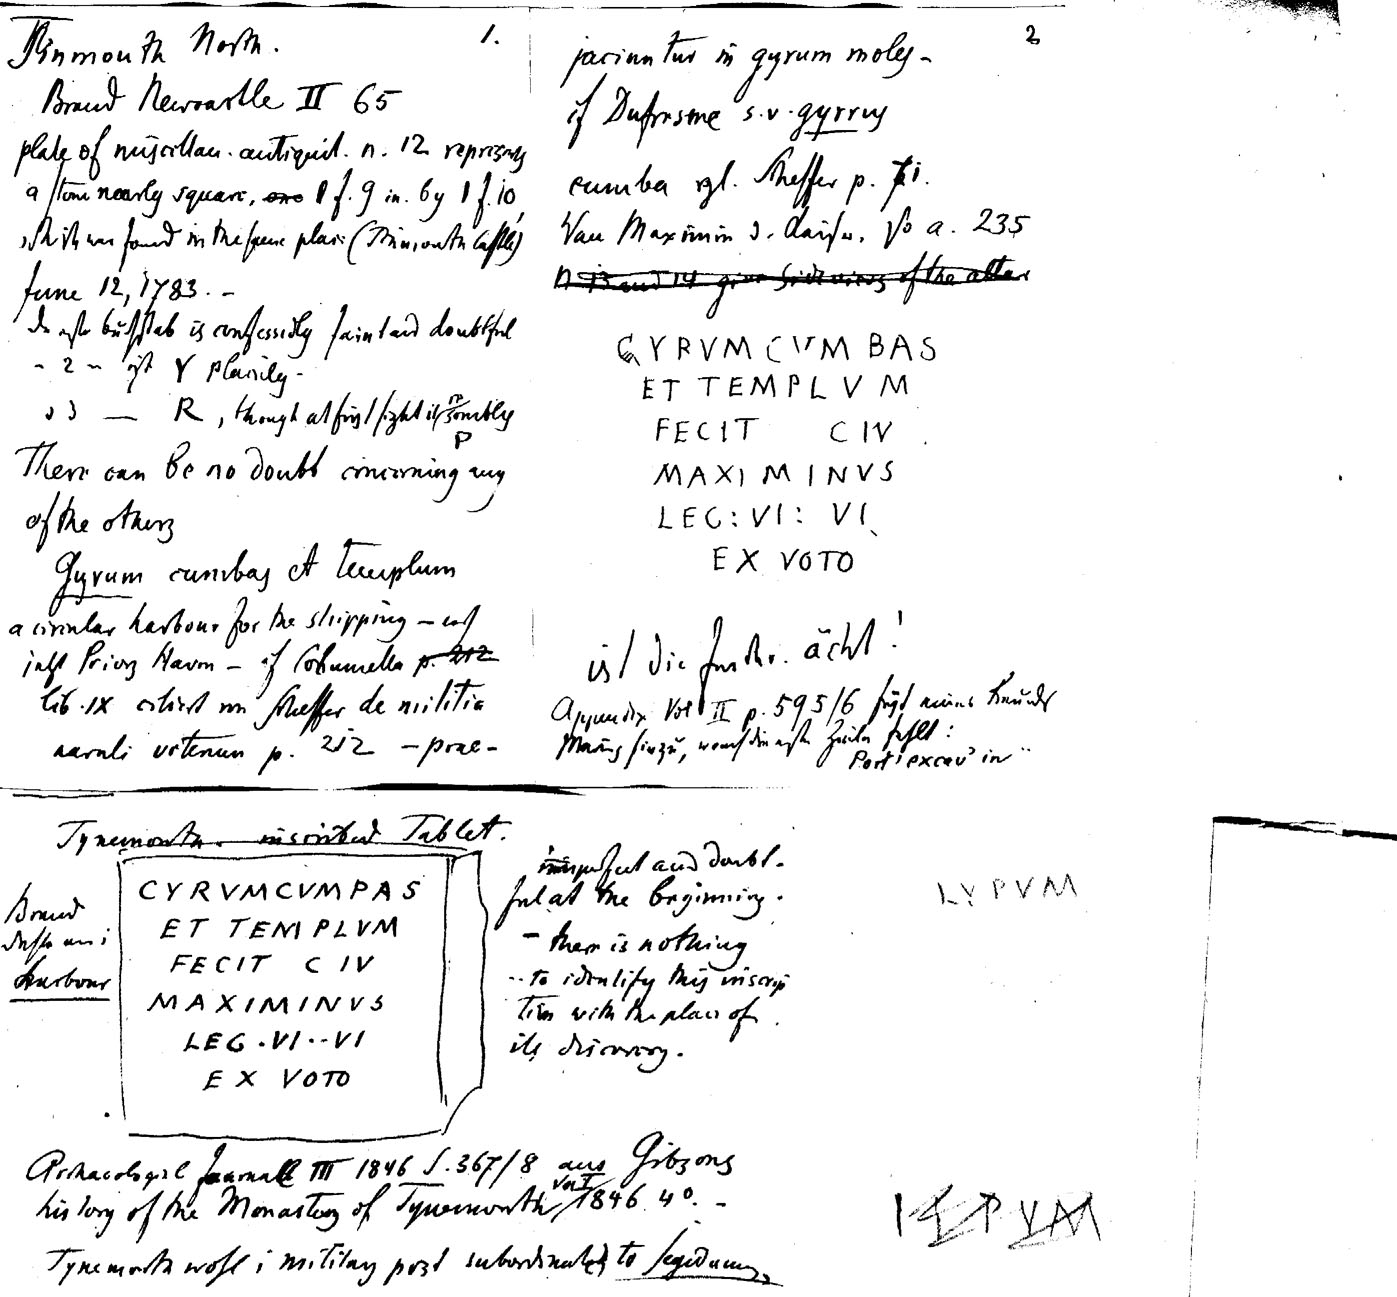 Tinmouth North. 1.
Brand Newcastle II 65
plate of miscellan. antiquit. n. 12 represents
a stone nearly square, 1 f. 9 in. by 1 f. 10,
which was found in the same place (Tinmouth Castle)
June 12, 1783. -
is confessedly faint and doubtful
- 2 - ist Y plainly -
" 3 — R, though at first sight it resembles P
There can be no doubt concerning any
of the others
Gyrum cumbas et templum
a circular harbour for the shipping -
Priors Haven - cf Columella p. 212
lib. IX citiert von Scheffer de militia
navali veterum p. 212 - prae-
2
jaciuntur in gyrum moles -
cf Dufresne s.v. gyrus
cumba vgl. Scheffer p. 71.
Maximin a. 235
n 13 and 14 give side views of the altar
GYRVM CVMBAS
ET TEMPLVM
FECIT CIV
MAXIMINVS
LEG: VI: VI
EX VOTO
ist die Inschr. ächt!
Appendix Vol II p. 595/6 fügt
hinzu, fehlt:
Port' excav' in
Tynemouth. inscribed Tablet.
Brand
harbour
CYRVMCVMPAS
ET TEMPLVM
FECIT C IV
MAXIMINVS
LEG . VI .. VI
EX VOTO
imperfect and doubt-
ful at the beginning.
- there is nothing
to identify this inscrip
tion with the place of
its discovery.
LYPVM
Archaeological Journal III 1846 S. 367/8 aus Gibsons
history of the Monastery of Tynemouth Vol I 1846 4°. -
Tynemouth wohl military post subordinated to Segedunum